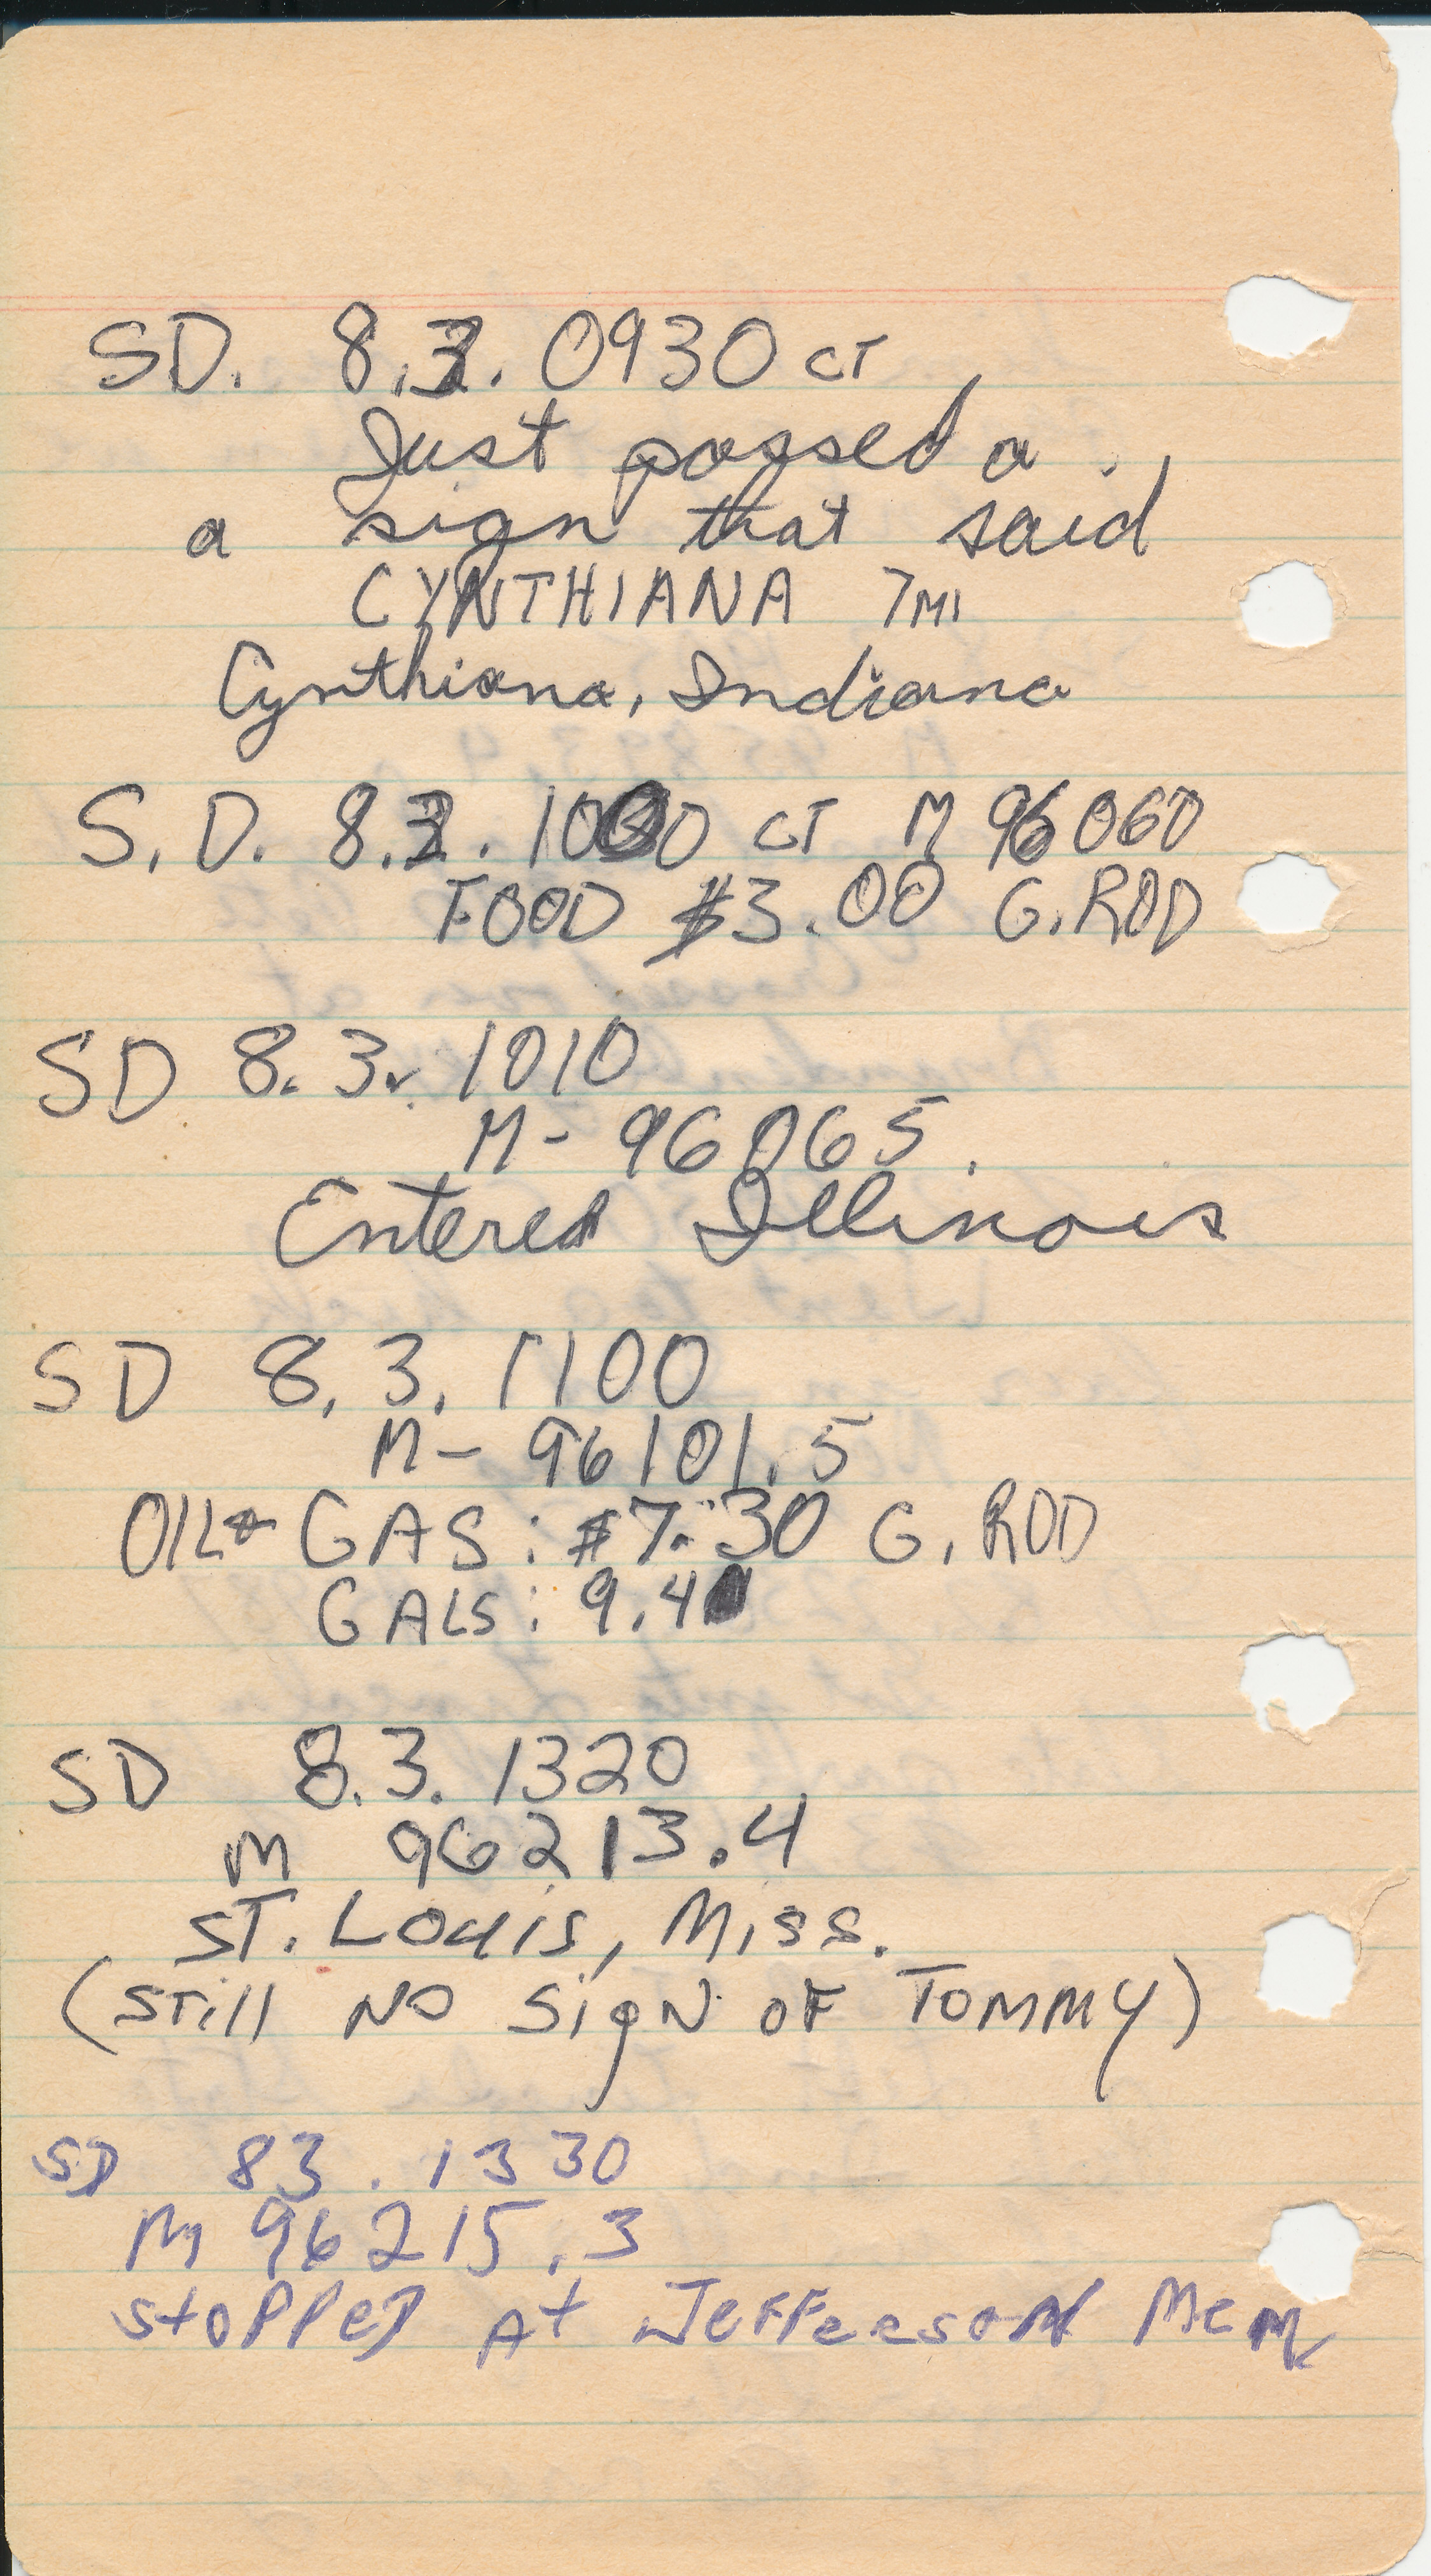 SD. 8.3. 0930 CT
Just passed a
a sign that said
CYNTHIANA 7MI
Cynthiana, Indiana
S.D. 8.3. 1000 CT M 96060
FOOD $3.00 G.ROD
SD 8.3. 1010
M- 96065.
Entered Illinois
SD 8.3. 1100
M- 96101.5
OIL & GAS: $7.30 G.ROD
GALS: 9.4
SD 8.3. 1320
M 96213.4
ST. LOUIS, MISS.
(STill NO SigN OF TOMMY)
SD 83. 1330
M 96215.3
StOPPeD At JeFFeRSON MeM